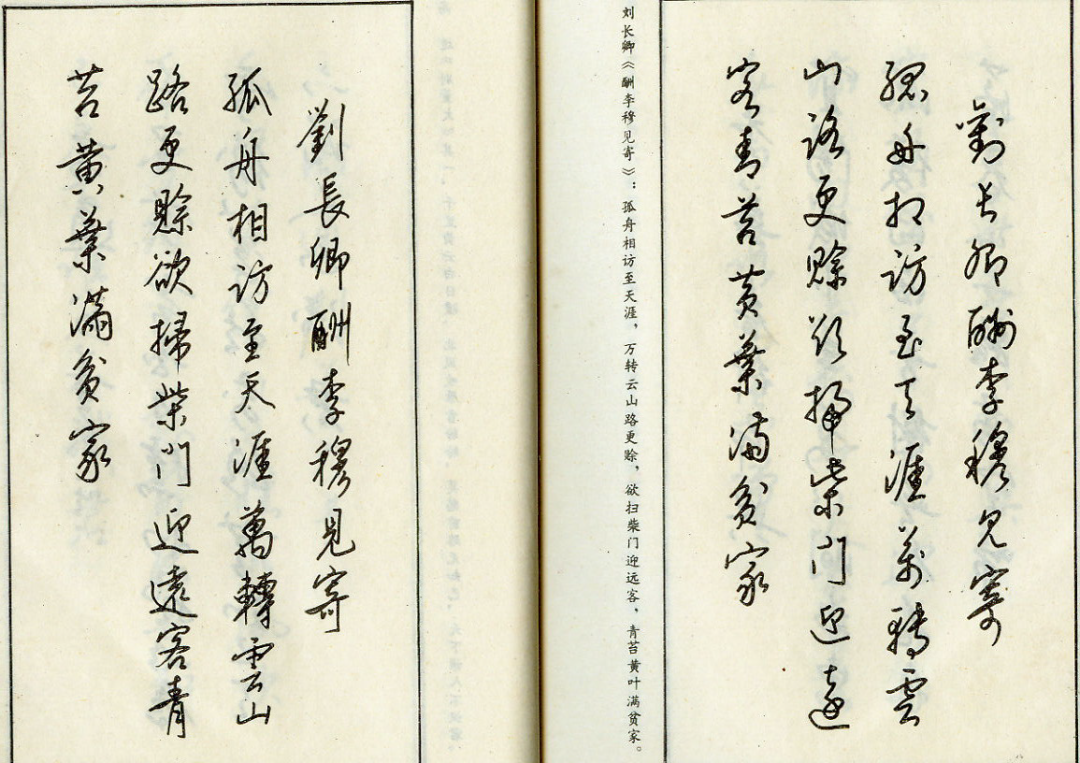 劉長卿酬李穆見寄
孤舟相訪至天涯萬轉雲
山路更賒欲掃柴門迎遠
客青苔黃葉滿貧家
刘长卿《酬李穆见寄》：孤舟相访至天涯，万转云山路更赊，欲扫柴门迎远客，青苔黄叶满贫家。
劉長卿酬李穆見寄
孤舟相訪至天涯萬轉雲山
路更賒欲掃柴門迎遠客青
苔黃葉滿貧家